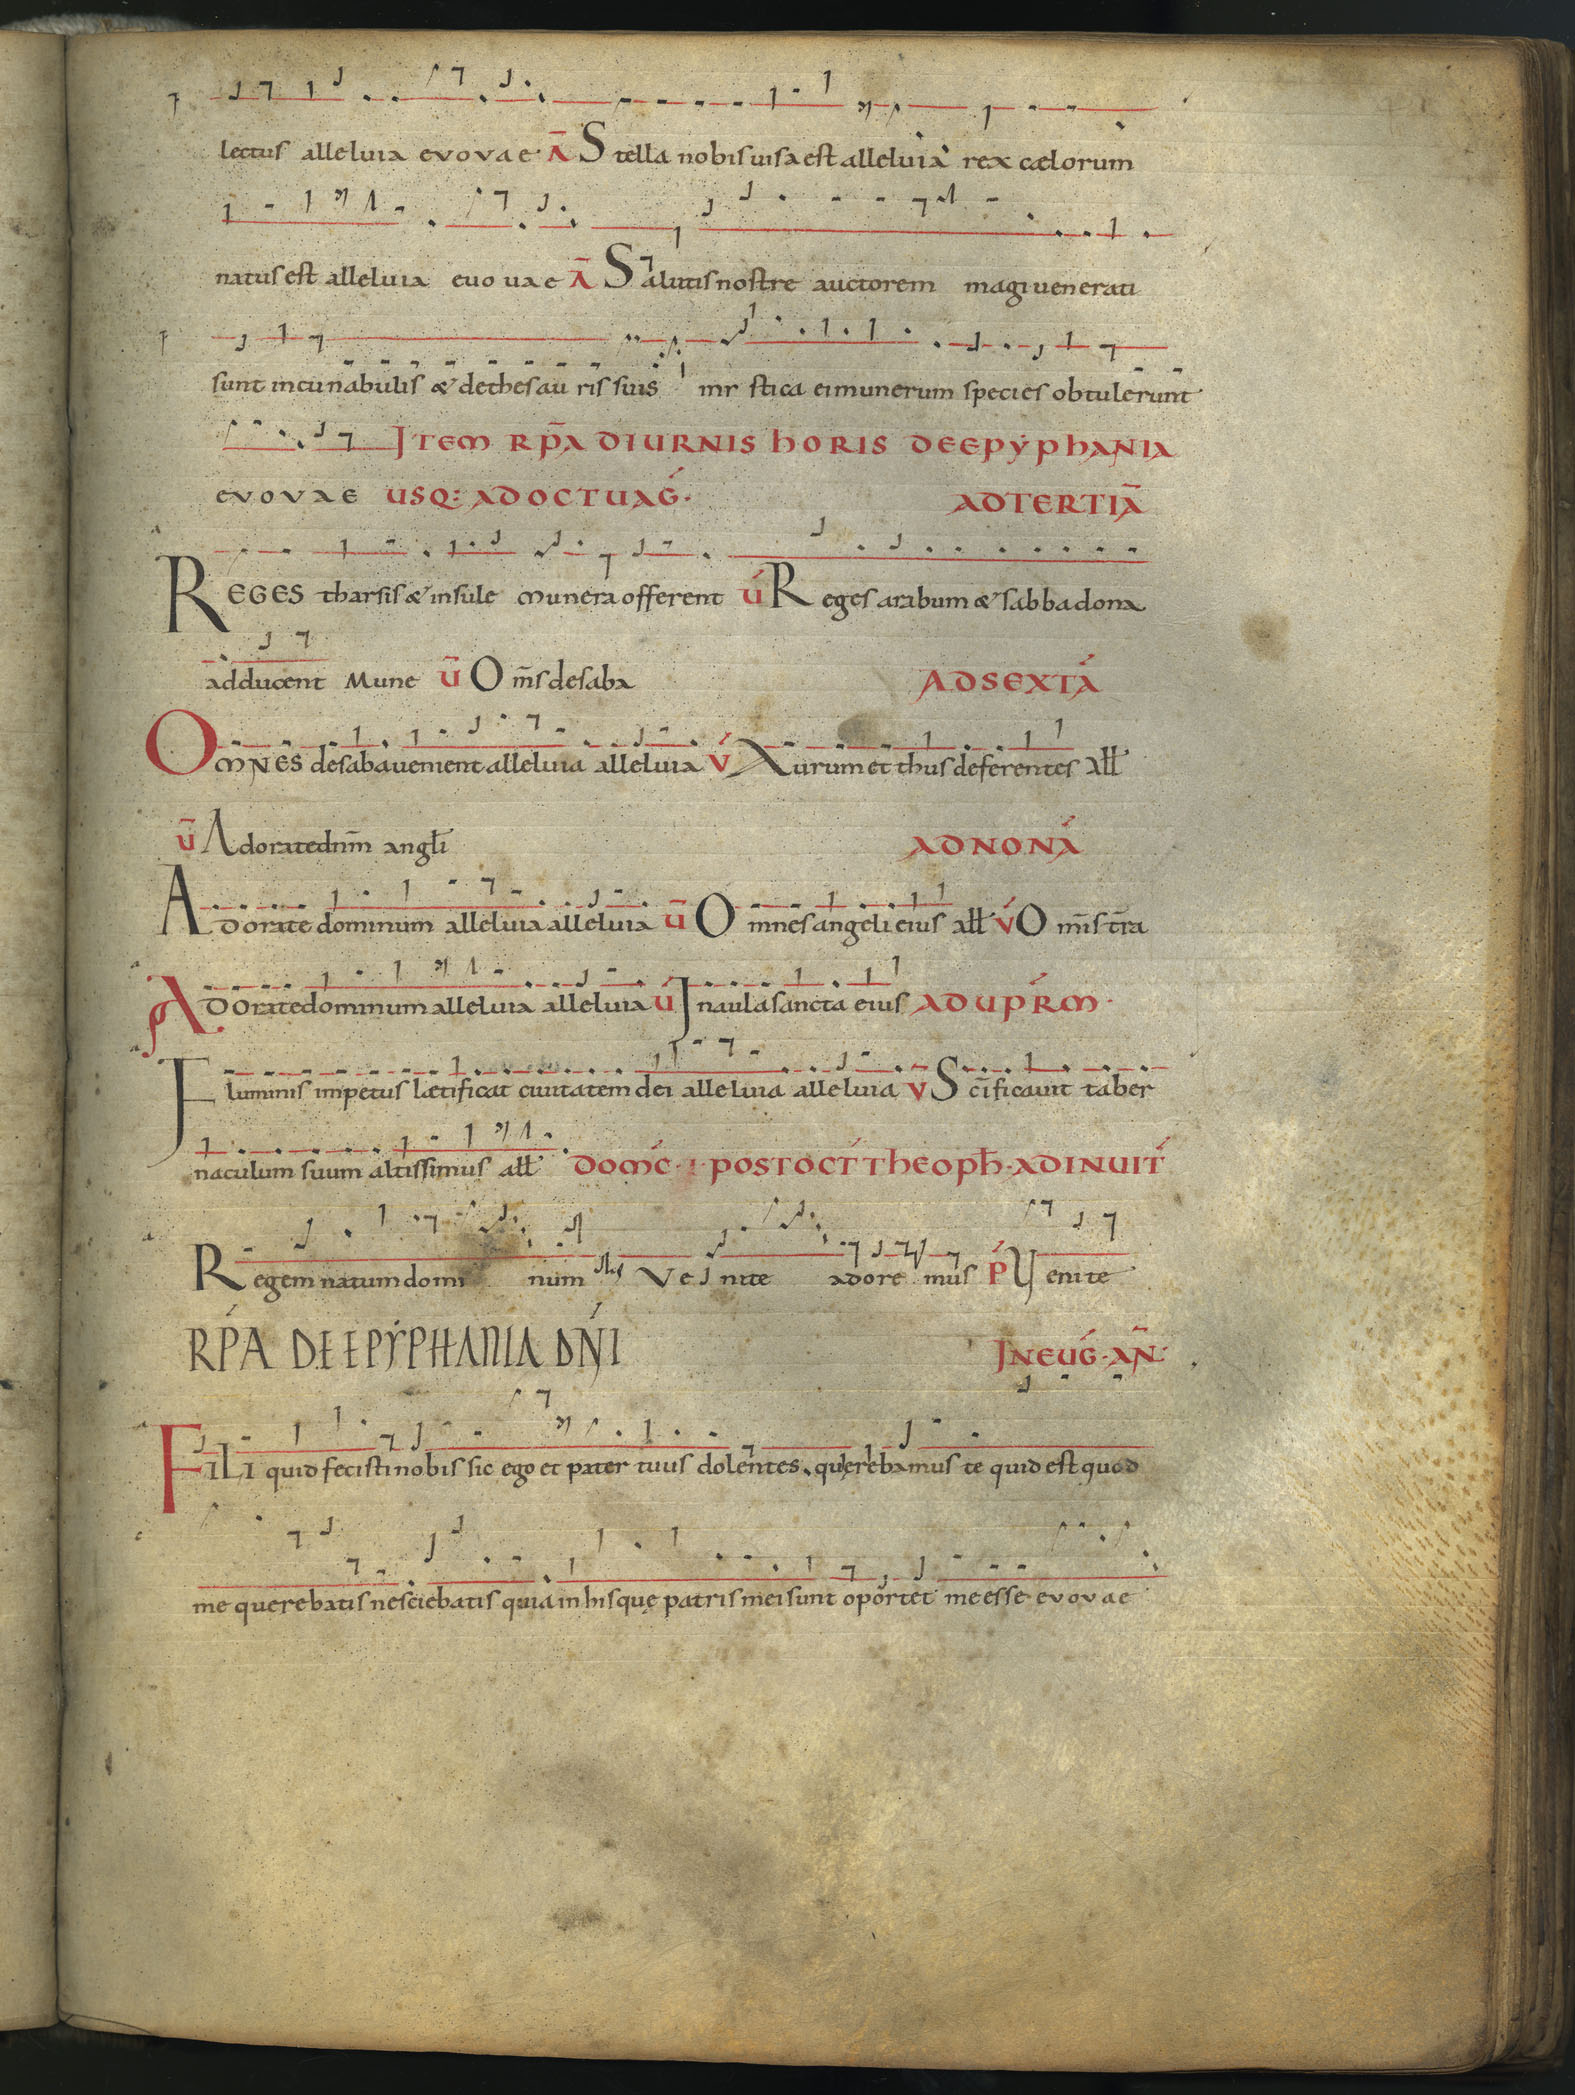 lectus alleluia evovae· Ā Stella nobis uisa est alleluia rex cælorum
natus est alleluia euouae Ā Salutis nostre auctorem magi uenerati
sunt incunabulis & de thesauris suis mystica ei munerum species obtulerunt
ITEM RP̄A DIURNIS HORIS DE EPẎPHANIA
evovae USQ: AD OCTUAǴ· AD TERTIĀ
REGES tharsis & insule munera offerent V́ Reges arabum & sabba dona
adducent Mune V̄ Om̄s de saba AD SEXTÁ
OMNES de saba uenient alleluia alleluia V́ Aurum et thus deferentes aƚƚ
V̄ Adorate dn̄m angƚi AD NONÁ
ADorate dominum alleluia alleluia V̄ Omnes angeli eius aƚƚ V́ Om̄is t̄ra
ADorate dominum alleluia alleluia V́ In aula sancta eius AD UPŔM·
Fluminis impetus lætificat ciuitatem dei alleluia alleluia V̄ Sc̄ificauit taber
naculum suum altissimus aƚƚ DOMĆ·I·POST OCT́ THEOPH̄·AD INUIT́
Regem natum dominum Venite adoremus Ṕ Venite
RṔA DE EPẎPHANIA DŃI IN EUǴ·AN̄·
FILI quid fecisti nobis sic ego et pater tuus dolentes querebamus te quid est quod
me querebatis nesciebatis quia in his quę patris mei sunt oportet me esse evovae